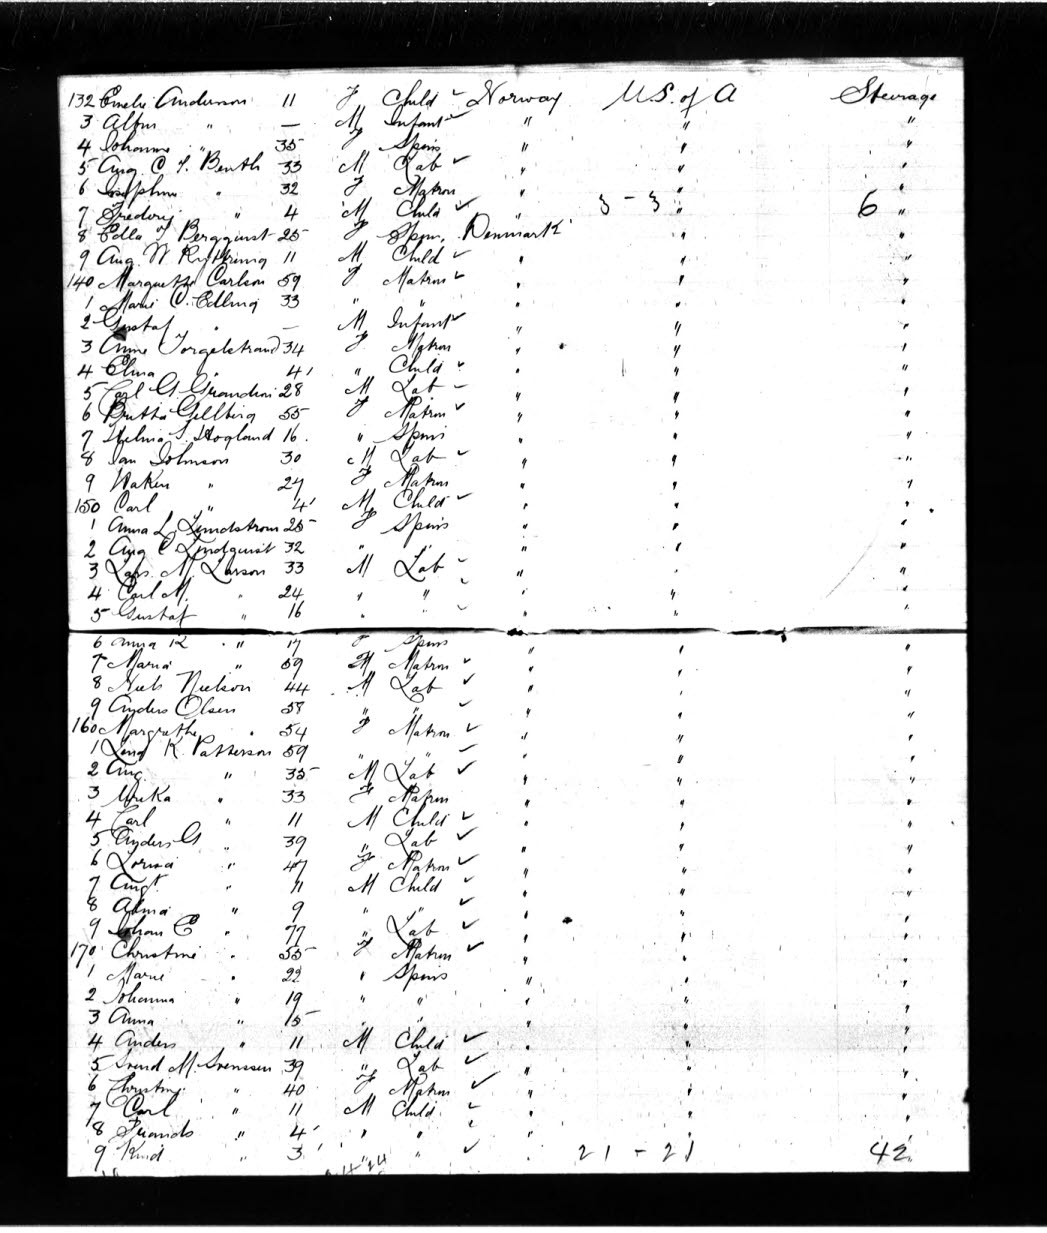 132 Emelie Anderson 11 F Child Norway U.S. of A Steerage
3 " — M Infant " " "
4 Johanna " 35 F Spins " " "
5 Aug. C. F. Benth 33 M Lab " " "
6 Josephine " 32 F Matron " " "
7 " 4 M Child " 3 - 3 " 6 "
8 Edla F Bergquist 25 F Spin. Denmark " "
9 Aug. W 11 M Child " " "
140 Margretta Carlson 59 F Matron " " "
1 Marie C. Edling 33 " " " " "
2 Gustaf " — M Infant " " "
3 Anne Torgelstrand 34 F Matron " " "
4 Elma " 4 " Child " " "
5 Carl G. 28 M Lab " " "
6 Britta Gellberg 55 F Matron " " "
7 S. Hoglund 16 " Spins " " "
8 Jan Johnson 30 M Lab " " "
9 " 27 F Matron " " "
150 Carl " 4 M Child " " "
1 Anna L. Lundstrom 25 F Spins " " "
2 Aug C Lindquist 32 " " " " "
3 Lars. M. Larson 33 M Lab " " "
4 Carl M. " 24 " " " " "
5 Gustaf " 16 " " " " "
6 Anna K " 17 F Spins " " "
7 Maria " 59 M Matron " " "
8 Niels Nielson 44 M Lab " " "
9 Anders Olsen 58 " " " " "
160 Margrethe " 54 F Matron " " "
1 Lena K. Patterson 59 " " " " "
2 Aug. " 35 M Lab " " "
3 Ulrika " 33 F Matron " " "
4 Carl " 11 M Child " " "
5 Anders G " 39 " Lab " " "
6 " 47 F Matron " " "
7 Augt. " 11 M Child " " "
8 Alma " 9 " " " " "
9 Johan C " 77 " Lab " " "
170 Christine " 55 F Matron " " "
1 Marie " 22 " Spins " " "
2 Johanna " 19 " " " " "
3 Anna " 15 " " " " "
4 Anders " 11 M Child " " "
5 Svend M Svenssen 39 " Lab " " "
6 Christine " 40 F Matron " " "
7 Carl " 11 M Child " " "
8 Frands " 4 " " " " "
9 Knud " 3 " " " 21 - 21 42